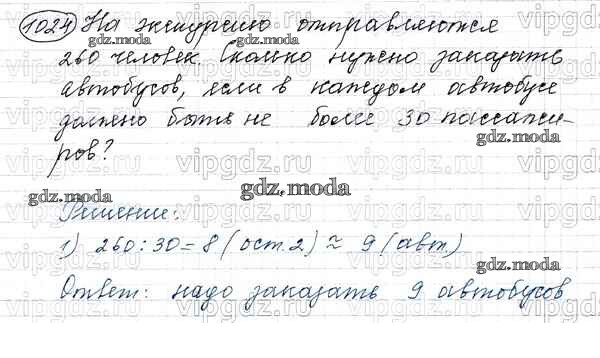 1024 На экскурсию отправляются
260 человек. Сколько нужно заказать
автобусов, если в каждом автобусе
должно быть не более 30 пассажи-
ров?
gdz.moda
Решение:
1) 260:30=8 (ост.2) ≈ 9 (авт.)
Ответ: надо заказать 9 автобусов